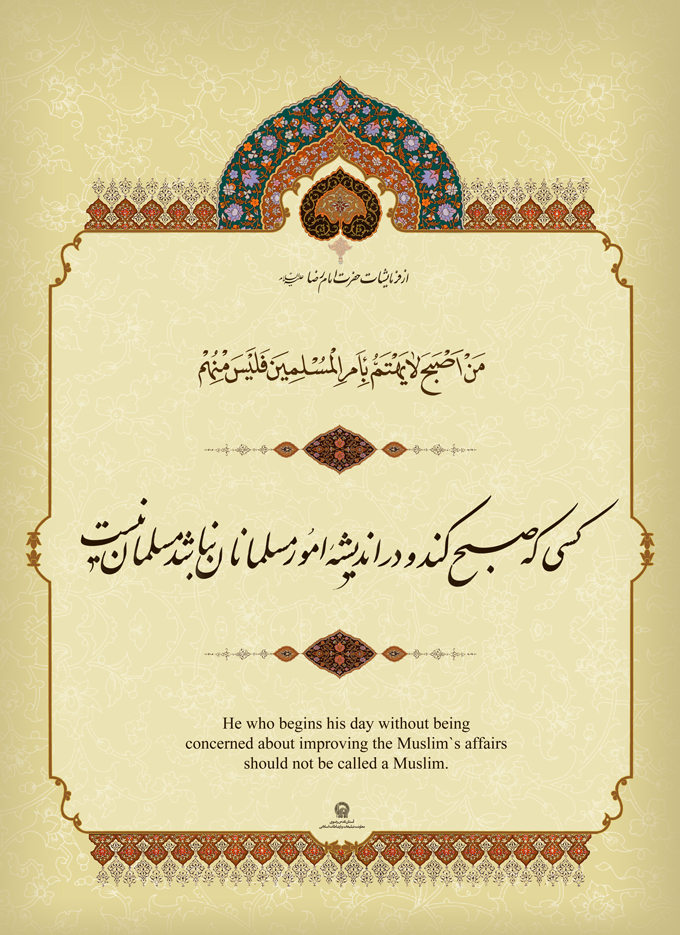 از فرمایشات حضرت امام رضا علیه‌السلام
مَنْ اَصْبَحَ لایَهْتَمُّ بِاَمرِ الْمُسْلِمینَ فَلَیْسَ مِنْهُمْ
کسی که صبح کند و در اندیشهٔ امُور مسلمانان نباشد مسلمان نیست
He who begins his day without being
concerned about improving the Muslim`s affairs
should not be called a Muslim.
آستان قدس رضوی
معاونت تبلیغات و ارتباطات اسلامی